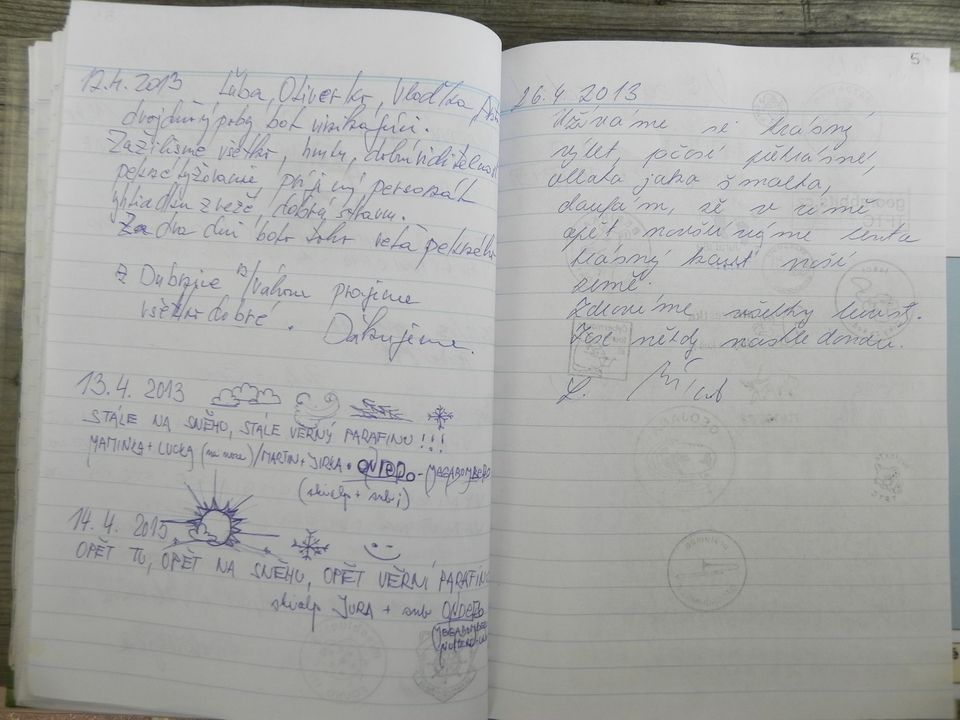 12.4.2013 Ľuba, Oliverko, Vlaďka
Zažili sme všetko, hmlu, dobrú viditeľnosť
pekné lyžovanie, príjemný personál
dobrú stravu.
Za dva dni bolo toho veľa pekného
Z Dubnice n/Váhom prajeme
všetko dobré. Ďakujeme.
13.4.2013
STÁLE NA SNĚHU, STÁLE VĚRNÝ PARAFINU!!!
MAMINKA + LUCKA (na noze) / MARTIN + JIRKA + ONDERO - MEGABOMBERO
(skialp + snb)
14.4.2013
OPĚT TU, OPĚT NA SNĚHU, OPĚT VĚRNÍ PARAFINU
skialp JURA + snb ONDERO
54
26.4.2013
Užíváme si krásný
výlet, počasí překrásné,
obloha jako šmolka,
doufám, že v zimě
opět navštívíme tento
krásný kout naší
země.
Zdravíme všetky turisty.
Zase někdy nashledanou.